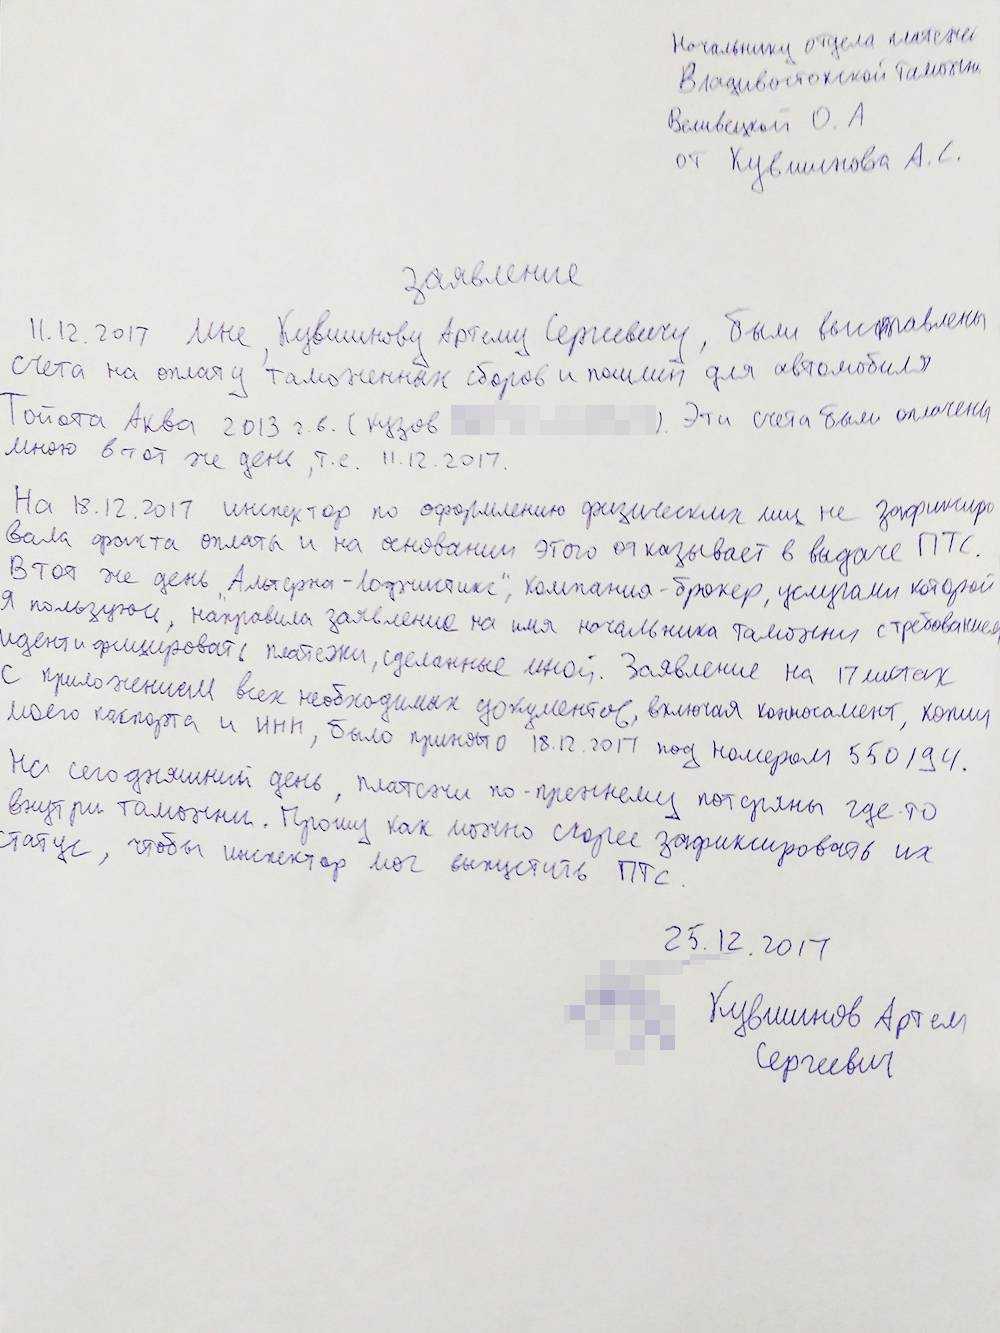 Начальнику отдела платежей
Владивостокской таможни
Веливецкой О. А
от Кувшинова А. С.
Заявление
11.12.2017 мне, Кувшинову Артему Сергеевичу, были выставлены
счета на оплату таможенных сборов и пошлин для автомобиля
Тойота Аква 2013 г.в. (кузов ). Эти счета были оплачены
мною в тот же день, т.е. 11.12.2017.
На 18.12.2017 инспектор по оформлению физических лиц не зафиксиро
вала факта оплаты и на основании этого отказывает в выдаче ПТС.
В тот же день "Альтерна-Лоджистикс", компания-брокер, услугами которой
я пользуюсь, направила заявление на имя начальника таможни с требованием
идентифицировать платежи, сделанные мной. Заявление на 17 листах
с приложением всех необходимых документов, включая коносамент, копии
моего паспорта и ИНН, было принято 18.12.2017 под номером 550194.
На сегодняшний день, платежи по-прежнему потеряны где-то
внутри таможни. Прошу как можно скорее зафиксировать их
статус, чтобы инспектор мог выпустить ПТС.
25.12.2017
Кувшинов Артем
Сергеевич